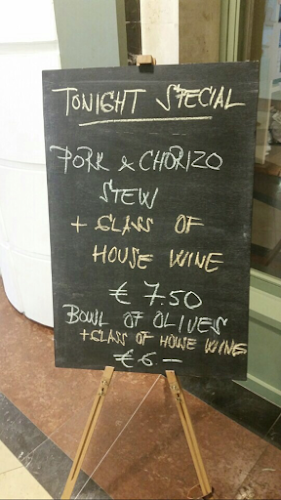 TONIGHT SPECIAL
PORK & CHORIZO
STEW
+ GLASS OF
HOUSE WINE
€ 7.50
BOWL OF OLIVES
+ GLASS OF HOUSE WINE
€ 6.—